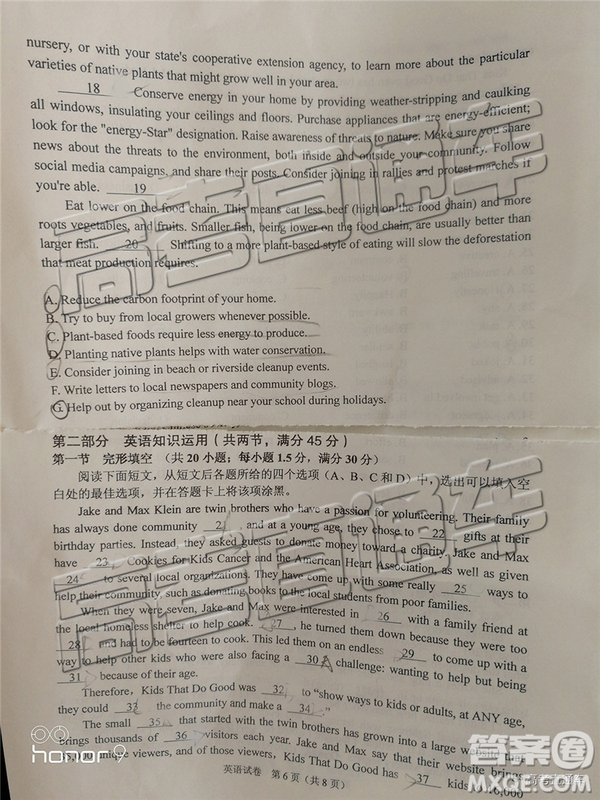 nursery, or with your state's cooperative extension agency, to learn more about the particular
varieties of native plants that might grow well in your area.
18 Conserve energy in your home by providing weather-stripping and caulking
all windows, insulating your ceilings and floors. Purchase appliances that are energy-efficient;
look for the "energy-Star" designation. Raise awareness of threats to nature. Make sure you share
news about the threats to the environment, both inside and outside your community. Follow
social media campaigns, and share their posts. Consider joining in rallies and protest marches if
you're able. 19
Eat lower on the food chain. This means eat less beef (high on the food chain) and more
roots vegetables, and fruits. Smaller fish, being lower on the food chain, are usually better than
larger fish. 20 Shifting to a more plant-based style of eating will slow the deforestation
that meat production requires.
A. Reduce the carbon footprint of your home.
B. Try to buy from local growers whenever possible.
C. Plant-based foods require less energy to produce.
D. Planting native plants helps with water conservation.
E. Consider joining in beach or riverside cleanup events.
F. Write letters to local newspapers and community blogs.
G. Help out by organizing cleanup near your school during holidays.
第二部分 英语知识运用（共两节，满分 45 分）
第一节 完形填空 （共 20 小题；每小题 1.5 分，满分 30 分）
阅读下面短文，从短文后各题所给的四个选项（A、B、C 和 D）中，选出可以填入空
白处的最佳选项，并在答题卡上将该项涂黑。
Jake and Max Klein are twin brothers who have a passion for volunteering. Their family
has always done community 21 and at a young age, they chose to 22 gifts at their
birthday parties. Instead, they asked guests to donate money toward a charity. Jake and Max
have 23 Cookies for Kids Cancer and the American Heart Association, as well as given
24 to several local organizations. They have come up with some really 25 ways to
help their community, such as donating books to the local students from poor families.
When they were seven, Jake and Max were interested in 26 with a family friend at
the local homeless shelter to help cook. 27, he turned them down because they were too
28 and had to be fourteen to cook. This led them on an endless 29 to come up with a
way to help other kids who were also facing a 30 challenge: wanting to help but being
31 because of their age.
Therefore, Kids That Do Good was 32 to "show ways to kids or adults, at ANY age,
they could 33 the community and make a 34."
The small 35 that started with the twin brothers has grown into a large website that
brings thousands of 36 visitors each year. Jake and Max say that their website brings
35,000 unique viewers, and of those viewers, Kids That Do Good has 37 kids to 16,000
英语试卷 第 6 页（共 8 页）
高考直通车
高考直通车
honor 9
答案圈